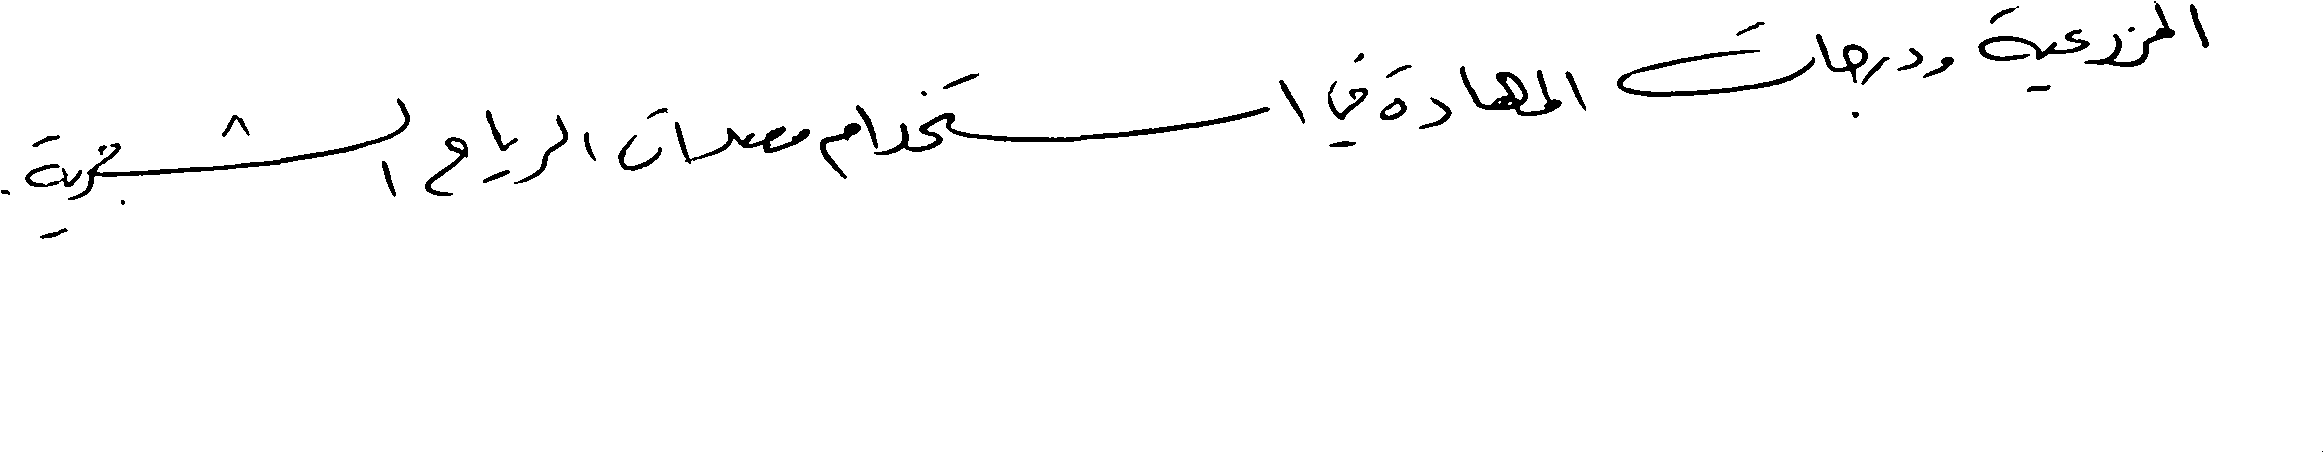 المزرعية ودرجات المهادة في استخدام مصدات الرياح الشجرية.